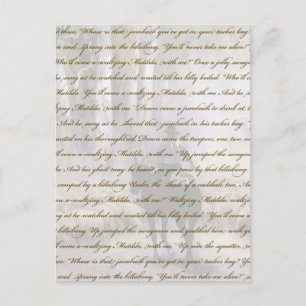 three. "Whose is that jumbuck you've got in your tucker bag?
man and sprang into the billabong. "You'll never take me alive!"
Who'll come a-waltzing Matilda, with me." Once a jolly swagm
he sang as he watched and waited till his billy boiled: "Who'll
Matilda. Who'll come a-waltzing Matilda, with me And he sang as
Waltzing Matilda, with me." Down came a jumbuck to drink at
And he sang as he shoved that jumbuck in his tucker bag:
mounted on his thoroughbred. Down came the troopers, one, two, and
'll come a-waltzing Matilda, with me." Up jumped the swagman
And his ghost may be heard as you pass by that billabong:
camped by a billabong Under the shade of a coolibah tree, An
a-waltzing Matilda, with me." Waltzing Matilda, Waltzing
sang as he watched and waited till his billy boiled: "You'll come
billabong. Up jumped the swagman and grabbed him with
You'll come a-waltzing Matilda, with me." Up rode the squatter,
"Whose is that jumbuck you've got in your tucker bag? Yo
and sprang into the billabong. "You'll never take me alive!"